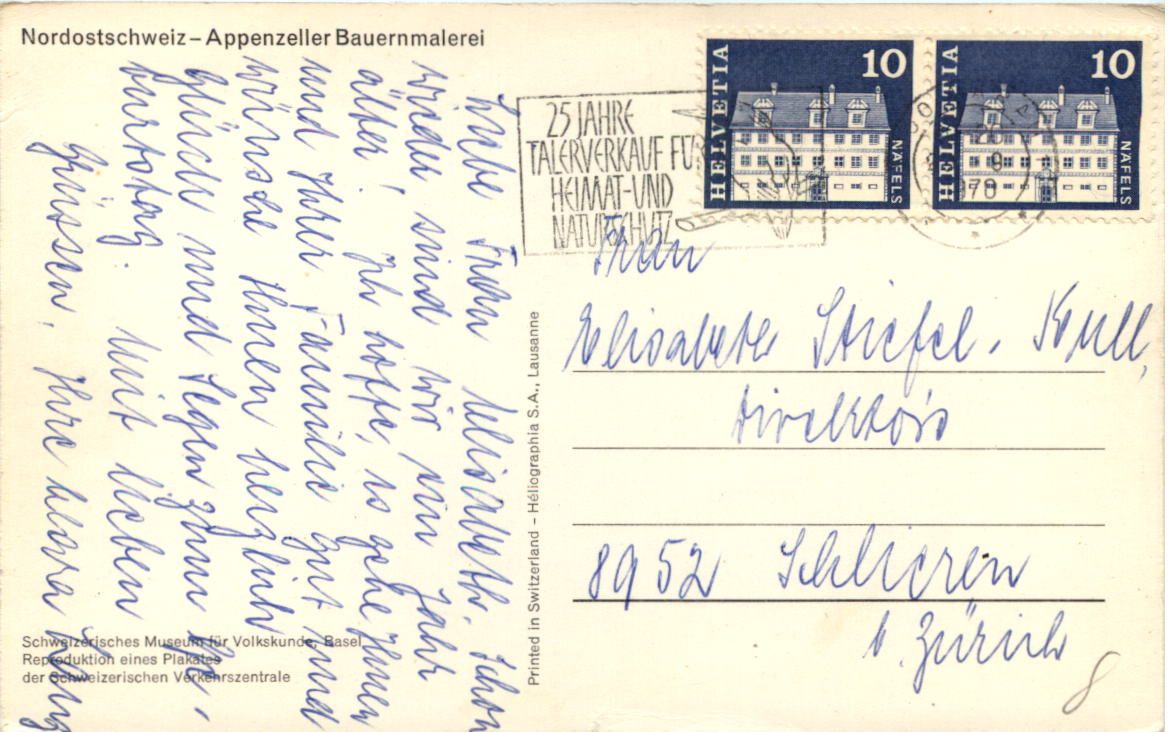 Nordostschweiz – Appenzeller Bauernmalerei
Liebe Frau Elisabeth. Schon
wieder sind wir um Jahr
älter! Ich hoffe, es gehe Ihnen
und Ihrer Familie gut und
wünsche Ihnen herzlich
Glück und Segen zum Ge-
burtstag. Mit lieben
Grüssen, Ihre Clara
Schweizerisches Museum für Volkskunde, Basel
Reproduktion eines Plakates
der Schweizerischen Verkehrszentrale
Printed in Switzerland – Héliographia S.A., Lausanne
25 JAHRE
TALERVERKAUF FÜR
HEIMAT-UND
NATURSCHUTZ
HELVETIA
10
NÄFELS
HELVETIA
10
NÄFELS
Frau
Elisabeth Stiefel-Kull,
8952 Schlieren
b. Zürich
8